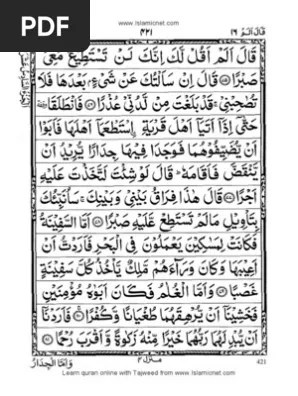 PDF
www.Islamicnet.com
قَالَ اَلَمْ ١٦
٤٢١
قَالَ اَلَمْ اَقُلْ لَّكَ اِنَّكَ لَنْ تَسْتَطِيْعَ مَعِيَ
صَبْرًا ۝ قَالَ اِنْ سَاَلْتُكَ عَنْ شَيْءٍۭ بَعْدَهَا فَلَا
تُصٰحِبْنِيْ ۚ قَدْ بَلَغْتَ مِنْ لَّدُنِّيْ عُذْرًا ۝ فَانْطَلَقَا
حَتّٰۤى اِذَاۤ اَتَيَاۤ اَهْلَ قَرْيَةِ اِۨسْتَطْعَمَاۤ اَهْلَهَا فَاَبَوْا
اَنْ يُّضَيِّفُوْهُمَا فَوَجَدَا فِيْهَا جِدَارًا يُّرِيْدُ اَنْ
يَّنْقَضَّ فَاَقَامَهٗ ؕ قَالَ لَوْ شِئْتَ لَتَّخَذْتَ عَلَيْهِ
اَجْرًا ۝ قَالَ هٰذَا فِرَاقُ بَيْنِيْ وَبَيْنِكَ ۚ سَاُنَبِّئُكَ
بِتَاْوِيْلِ مَا لَمْ تَسْتَطِعْ عَّلَيْهِ صَبْرًا ۝ اَمَّا السَّفِيْنَةُ
فَكَانَتْ لِمَسٰكِيْنَ يَعْمَلُوْنَ فِي الْبَحْرِ فَاَرَدْتُّ اَنْ
اَعِيْبَهَا وَكَانَ وَرَآءَهُمْ مَّلِكٌ يَّاْخُذُ كُلَّ سَفِيْنَةٍ
غَصْبًا ۝ وَاَمَّا الْغُلٰمُ فَكَانَ اَبَوٰهُ مُؤْمِنَيْنِ
فَخَشِيْنَاۤ اَنْ يُّرْهِقَهُمَا طُغْيَانًا وَّكُفْرًا ۝ فَاَرَدْنَاۤ
اَنْ يُّبْدِلَهُمَا رَبُّهُمَا خَيْرًا مِّنْهُ زَكٰوةً وَّاَقْرَبَ رُحْمًا ۝
وَاَمَّا الْجِدَارُ
منزل ٤
421
Learn quran online with Tajweed from www.Islamicnet.com